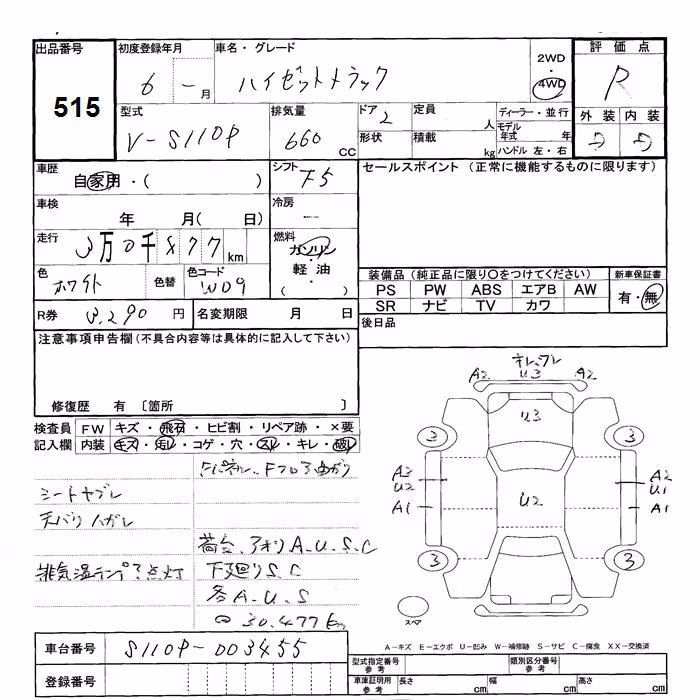 出品番号 初度登録年月 車名・グレード 2WD 4WD 評価点
515 6 - 月 ハイゼットトラック R
型式 排気量 ドア 定員 ディーラー・並行 外装 内装
V-S110P 660 CC 2 人 モデル年式 年 D D
形状 積載 kg ハンドル 左・右
車歴 シフト セールスポイント (正常に機能するものに限ります)
自家用・( ) F5
車検 冷房
年 月( 日) —
走行 燃料
3万0千877 km ガソリン・軽油・( )
色 色替 色コード 装備品(純正品に限り○をつけてください) 新車保証書
ホワイト W09 PS PW ABS エアB AW 有・無
SR ナビ TV カワ
R券 8,290 円 名変期限 月 日 後日品
注意事項申告欄(不具合内容等は具体的に記入して下さい)
修復歴 有 〔箇所 〕
検査員 FW キズ・飛石・ヒビ割・リペア跡・×要
記入欄 内装 キズ・汚レ・コゲ・穴・スレ・キレ・破レ
シートヤブレ
天バリハガレ
荷台、アオリA.U.S.C
排気温ランプ 点灯 下廻りS.C
各A.U.S
30,477km
A2 U3 A2
U3
3 3
A2 U2 U2 A2 U1
A1 A1
3 3
スペア
A-キズ E-エクボ U-凹み W-補修跡 S-サビ C-腐食 XX-交換済
車台番号 S110P-003455
登録番号
型式指定番号 参考 類別区分番号 参考
車庫証明用 参考 長さ cm 幅 cm 高さ cm